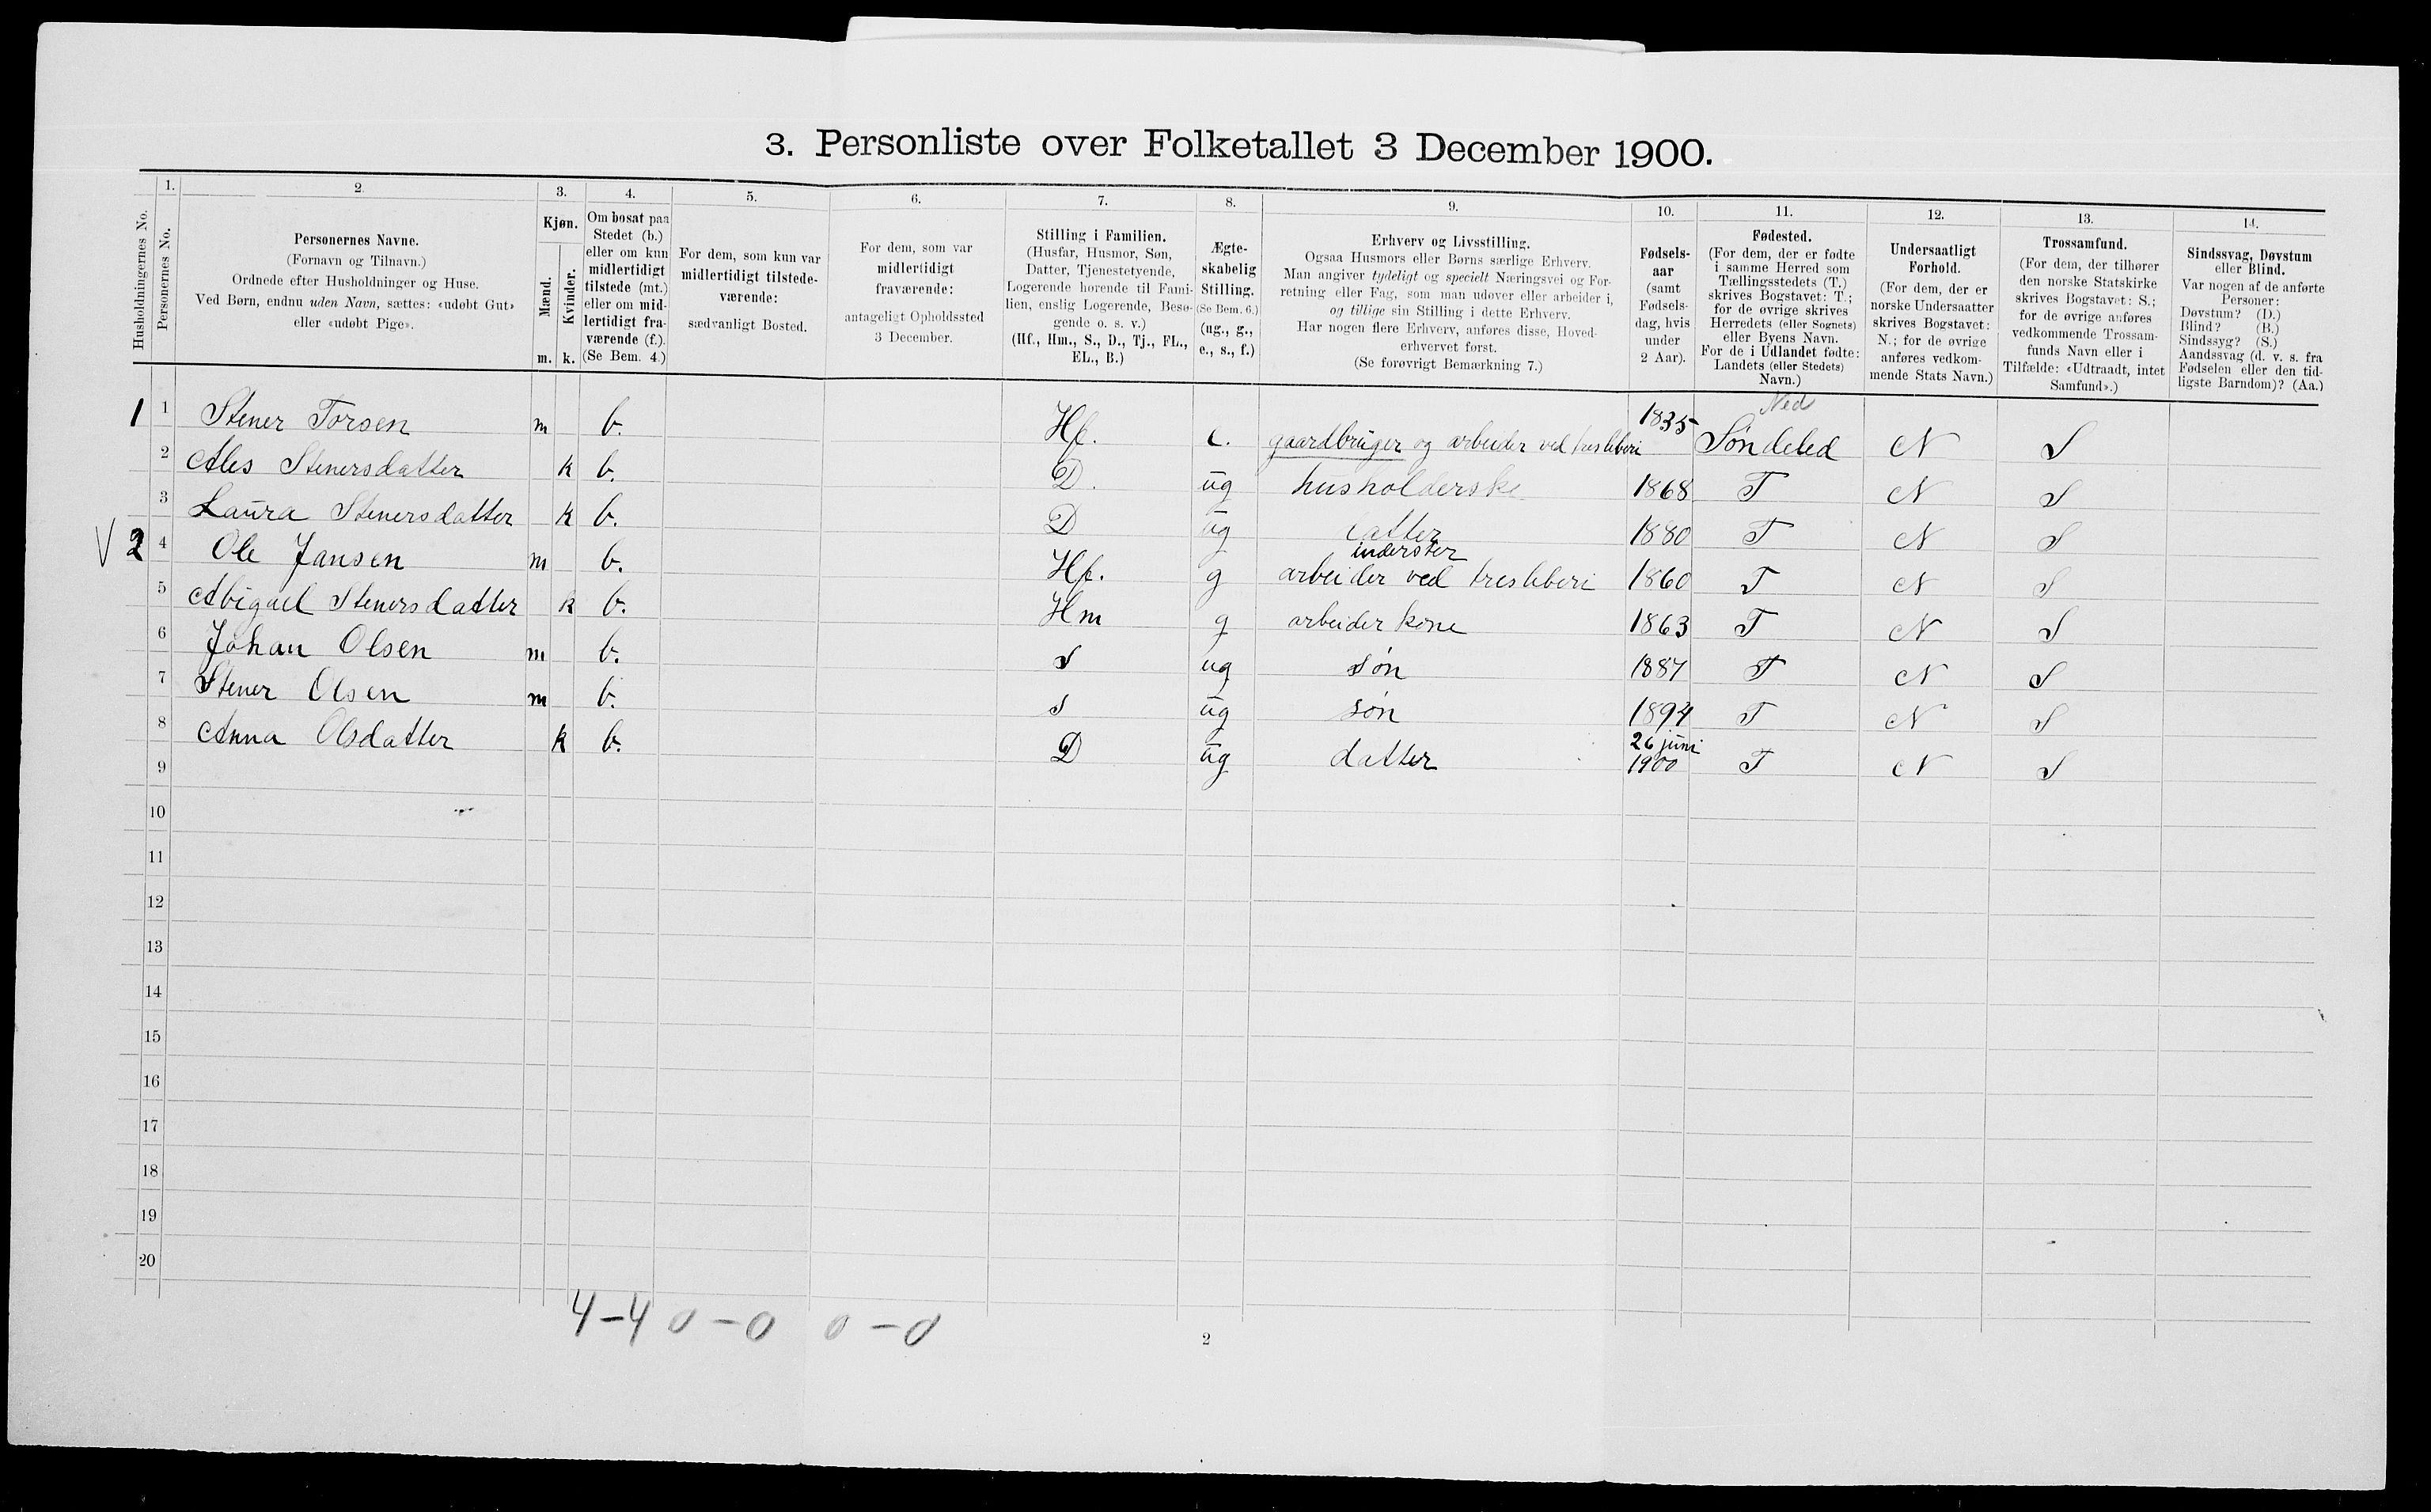 3. Personliste over Folketallet 3 December 1900.
1. 2. 3. 4. 5. 6. 7. 8. 9. 10. 11. 12. 13. 14.
Husholdningernes No.
Personernes No.
Personernes Navne.
(Fornavn og Tilnavn.)
Ordnede efter Husholdninger og Huse.
Ved Børn, endnu uden Navn, sættes: «udøbt Gut»
eller «udøbt Pige».
Kjøn.
Mænd.
Kvinder.
m. k.
Om bosat paa
Stedet (b.)
eller om kun
midlertidigt
tilstede (mt.)
eller om mid-
lertidigt fra-
værende (f.).
(Se Bem. 4.)
For dem, som kun var
midlertidigt tilstede-
værende:
sædvanligt Bosted.
For dem, som var
midlertidigt
fraværende:
antageligt Opholdssted
3 December.
Stilling i Familien.
(Husfar, Husmor, Søn,
Datter, Tjenestetyende,
Logerende hørende til Fami-
lien, enslig Logerende, Besø-
gende o. s. v.)
(Hf., Hm., S., D., Tj., FL.,
EL., B.)
Ægte-
skabelig
Stilling.
(Se Bem. 6.)
(ug., g.,
e., s., f.)
Erhverv og Livsstilling.
Ogsaa Husmors eller Børns særlige Erhverv.
Man angiver tydeligt og specielt Næringsvei og For-
retning eller Fag, som man udøver eller arbeider i,
og tillige sin Stilling i dette Erhverv.
Har nogen flere Erhverv, anføres disse, Hoved-
erhvervet først.
(Se forøvrigt Bemærkning 7.)
Fødsels-
aar
(samt
Fødsels-
dag, hvis
under
2 Aar).
Fødested.
(For dem, der er fødte
i samme Herred som
Tællingsstedets (T.)
skrives Bogstavet: T.;
for de øvrige skrives
Herredets (eller Sognets)
eller Byens Navn.
For de i Udlandet fødte:
Landets (eller Stedets)
Navn.)
Undersaatligt
Forhold.
(For dem, der er
norske Undersaatter
skrives Bogstavet:
N.; for de øvrige
anføres vedkom-
mende Stats Navn.)
Trossamfund.
(For dem, der tilhører
den norske Statskirke
skrives Bogstavet: S.;
for de øvrige anføres
vedkommende Trossam-
funds Navn eller i
Tilfælde: «Udtraadt, intet
Samfund».)
Sindssvag, Døvstum
eller Blind.
Var nogen af de anførte
Personer:
Døvstum? (D.)
Blind? (B.)
Sindssyg? (S.)
Aandssvag (d. v. s. fra
Fødselen eller den tid-
ligste Barndom)? (Aa.)
Ned
1 1 Stener Torsen m b. Hf. e. gaardbruger og arbeider ved tresleberi 1835 Søndeled N S
2 Ales Stenersdatter k b. D. ug husholderske 1868 T N S
3 Laura Stenersdatter k b. D ug datter 1880 T N S
inderster
V 2 4 Ole Jansen m b. Hf. g arbeider ved tresleberi 1860 T N S
5 Abigael Stenersdatter k b. Hm g arbeider kone 1863 T N S
6 Johan Olsen m b. S ug søn 1887 T N S
7 Stener Olsen m b. S ug søn 1894 T N S
8 Anna Olsdatter k b. D ug datter 26 juni 1900 T N S
9
10
11
12
13
14
15
16
17
18
19
20
4-4 0-0 0-0
2